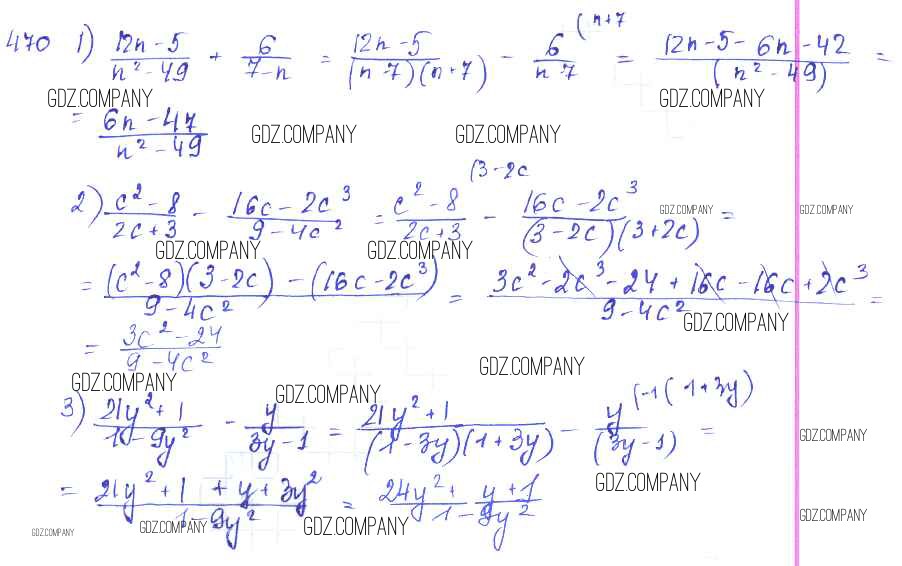 470 1) (12n-5)/(n²-49) + 6/(7-n) = (12n-5)/((n-7)(n+7)) - 6/(n-7) (n+7 = (12n-5-6n-42)/(n²-49) =
GDZ.COMPANY GDZ.COMPANY
= (6n-47)/(n²-49)
GDZ.COMPANY GDZ.COMPANY
2) (c²-8)/(2c+3) - (16c-2c³)/(9-4c²) = (c²-8)/(2c+3) (3-2c - (16c-2c³)/((3-2c)(3+2c)) =
GDZ.COMPANY GDZ.COMPANY
GDZ.COMPANY GDZ.COMPANY
= ((c²-8)(3-2c)-(16c-2c³))/(9-4c²) = (3c²-2c³-24+16c-16c+2c³)/(9-4c²) =
GDZ.COMPANY
= (3c²-24)/(9-4c²)
GDZ.COMPANY
GDZ.COMPANY GDZ.COMPANY
3) (21y²+1)/(1-9y²) - y/(3y-1) = (21y²+1)/((1-3y)(1+3y)) - y/(3y-1) (-1(1+3y) =
GDZ.COMPANY
GDZ.COMPANY
= (21y²+1+y+3y²)/(1-9y²) = (24y²+y+1)/(1-9y²)
GDZ.COMPANY GDZ.COMPANY GDZ.COMPANY GDZ.COMPANY